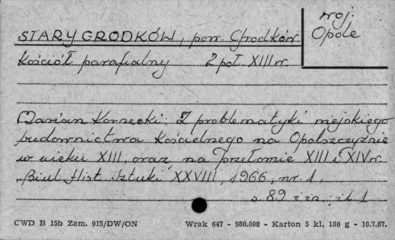 STARY GRODKÓW, pow. Grodków
woj.
Opole
Kościół parafialny 2 poł. XIII w.
Marian Kornecki: Z problematyki miejskiego
budownictwa kościelnego na Opolszczyźnie
w wieku XIII, oraz na przełomie XIII i XIV w.
Biul. Hist. Sztuki XXVIII, 1966, nr. 1,
s 89 i in. il. 1
CWD B 15b Zam. 915/DW/ON Wrak 647 - 980.000 - Karton 5 kl. 180 g - 10.7.67.